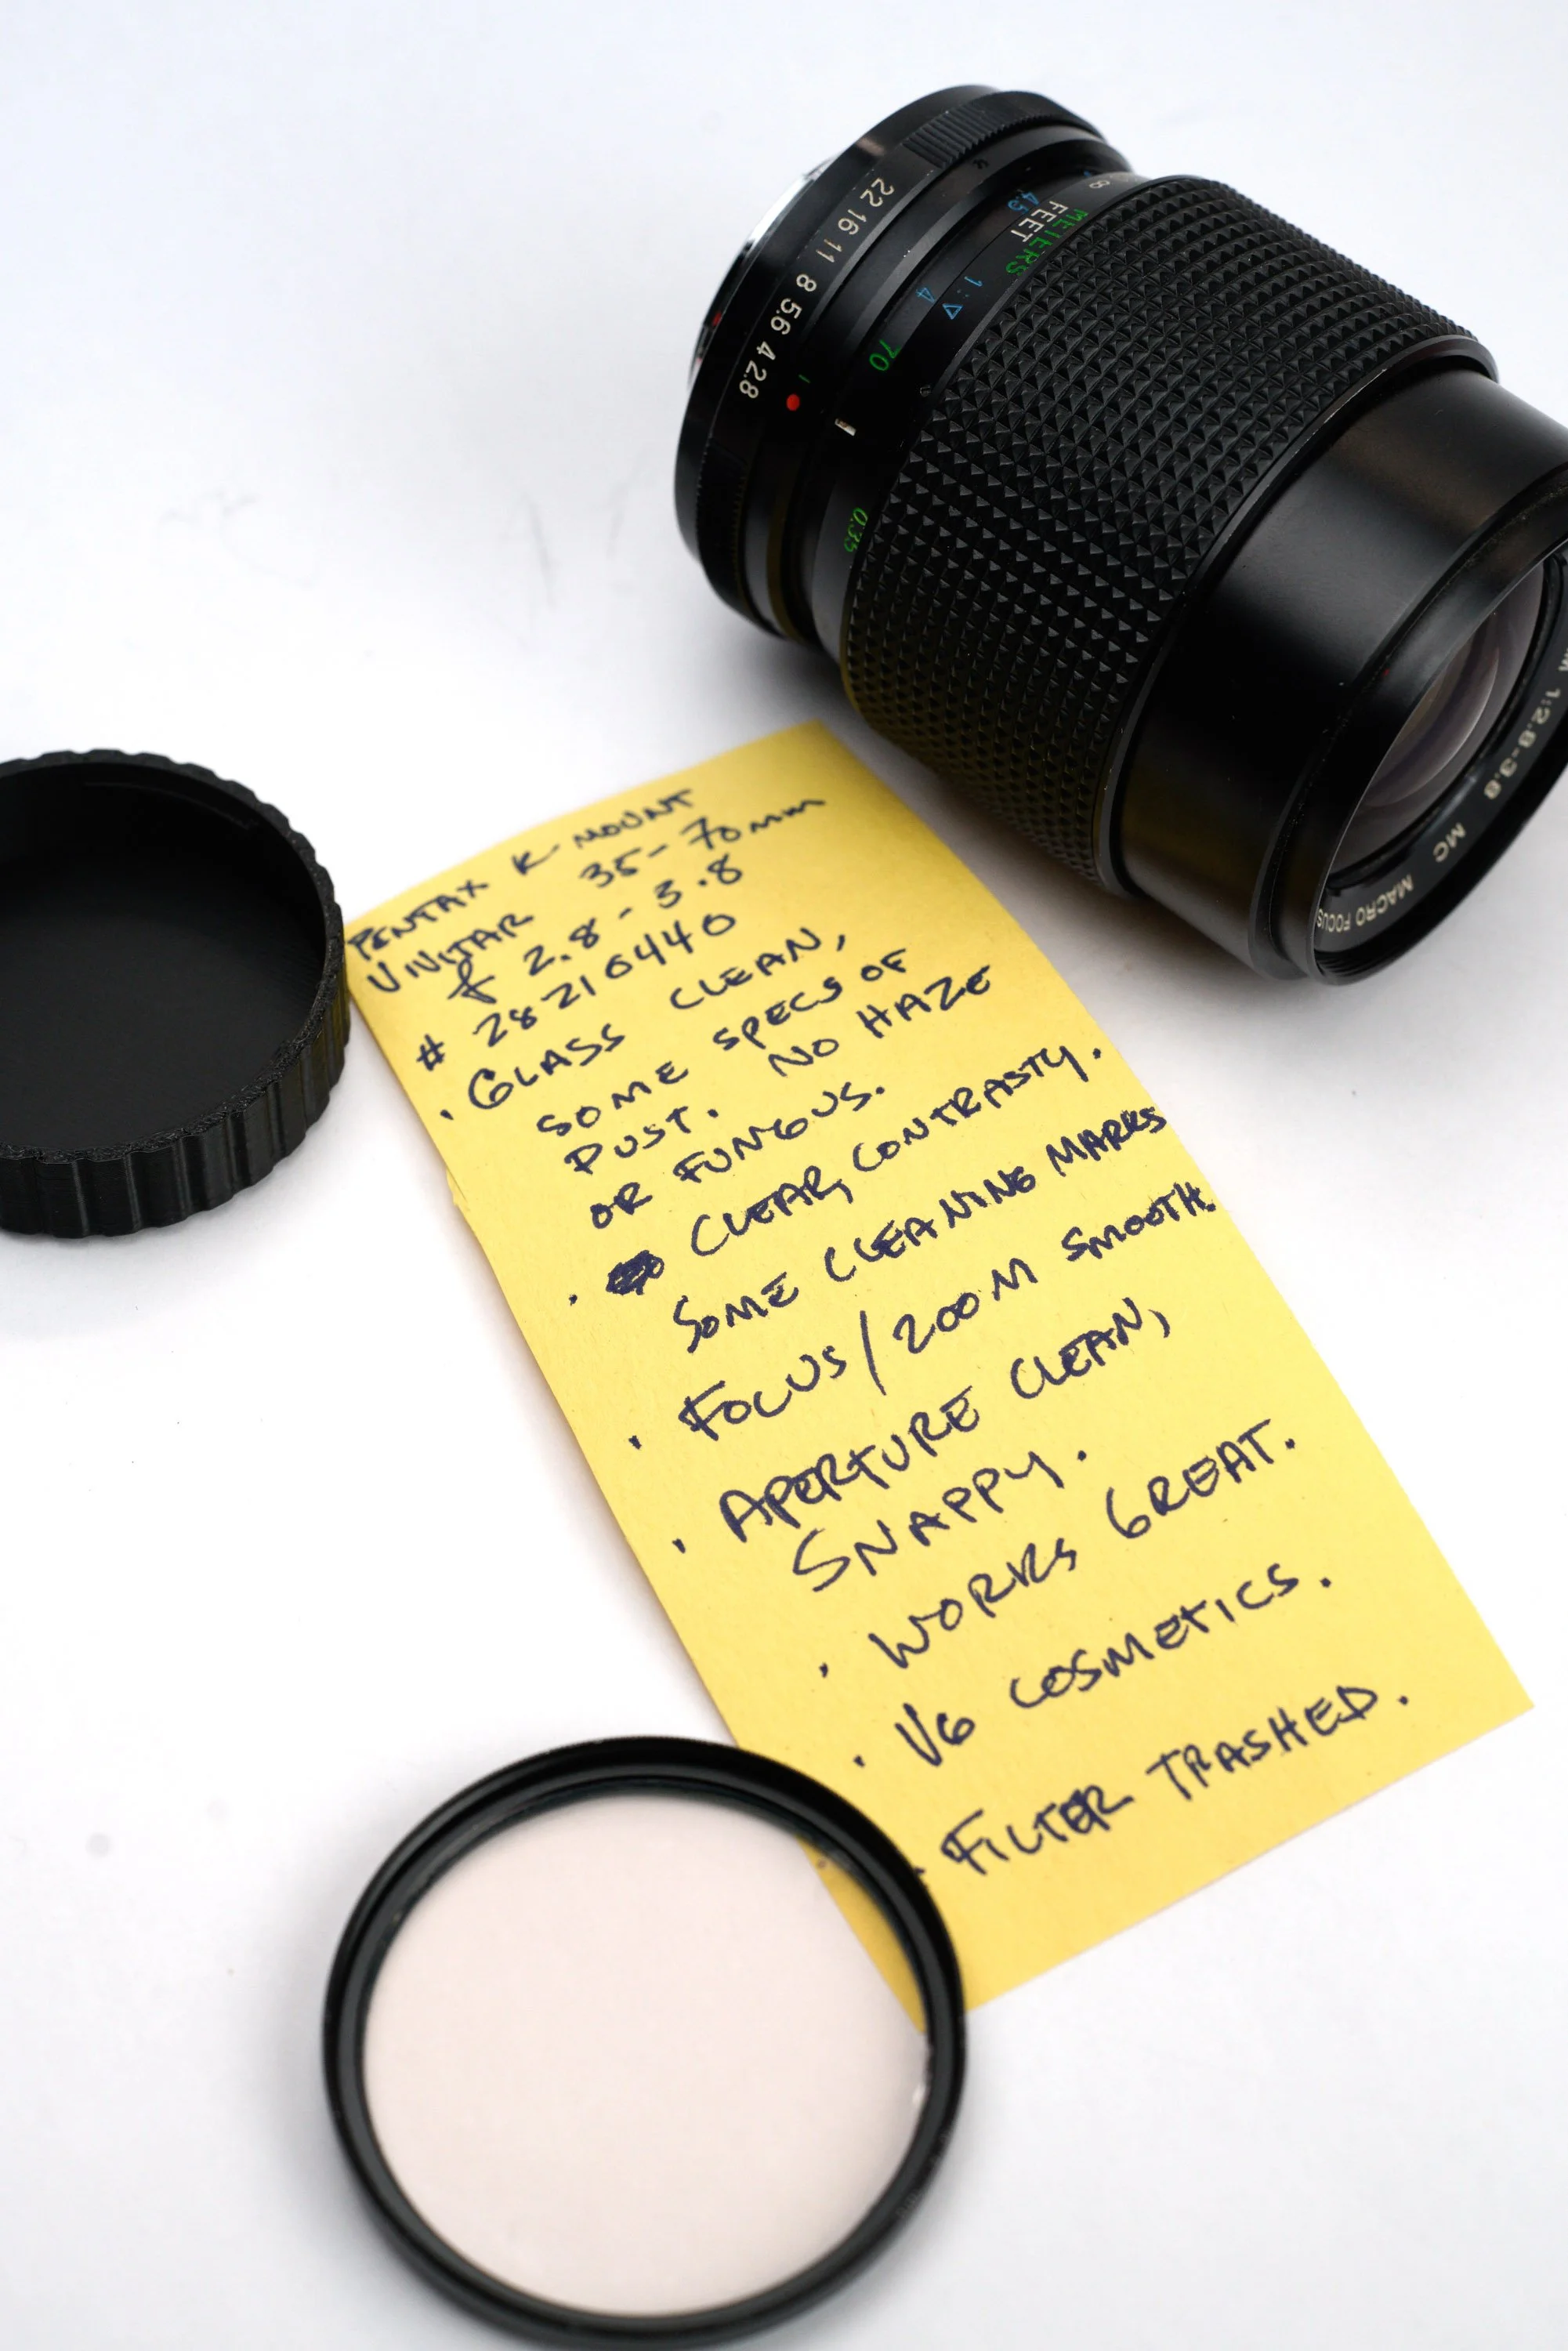 22 16 11 8 5.6 4 2.8
4.5
FEET
METERS
1:▽ 4
70
0.35
1:2.8-3.8 MC MACRO FOCUS
PENTAX K-MOUNT
VIVITAR 35-70mm
f 2.8-3.8
# 28210440
• GLASS CLEAN,
SOME SPECS OF
DUST. NO HAZE
OR FUNGUS.
• CLEAR, CONTRASTY.
SOME CLEANING MARKS
• FOCUS/ZOOM SMOOTH.
• APERTURE CLEAN,
SNAPPY.
• WORKS GREAT.
• VG COSMETICS.
• FILTER TRASHED.